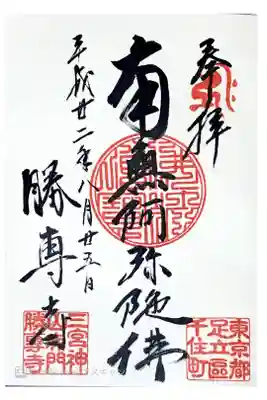 奉拝
南無阿弥陀佛
平成廿二年八月廿五日
勝専寺
東京都
足立區
千住町
三宮神
勝専寺